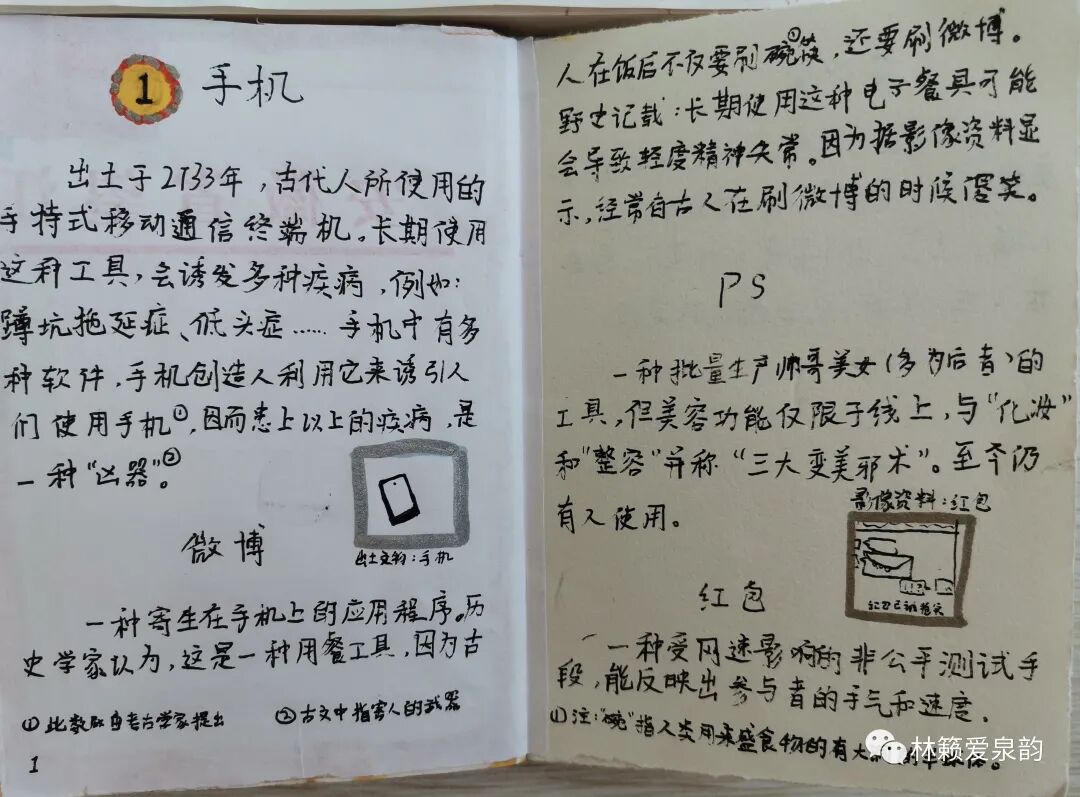 1 手机
出土于2133年，古代人所使用的
手持式移动通信终端机。长期使用
这种工具，会诱发多种疾病，例如：
蹲坑拖延症、低头症……手机中有多
种软件，手机创造人利用它来诱引人
们使用手机①，因而患上以上的疾病，是
一种“凶器”②。
出土文物：手机
微博
一种寄生在手机上的应用程序。历
史学家认为，这是一种用餐工具，因为古
①此数据由考古学家提出
②古文中指害人的武器
1
人在饭后不仅要刷碗①筷，还要刷微博。
野史记载：长期使用这种电子餐具可能
会导致轻度精神失常。因为据影像资料显
示，经常有古人在刷微博的时候傻笑。
PS
一种批量生产帅哥美女（多为后者）的
工具，但美容功能仅限于线上，与“化妆”
和“整容”并称“三大变美邪术”。至今仍
有人使用。
影像资料：红包
红包已被抢完
红包
一种受网速影响的非公平测试手
段，能反映出参与者的手气和速度．
①注：“碗”指人类用来盛食物的有大
林籁爱泉韵